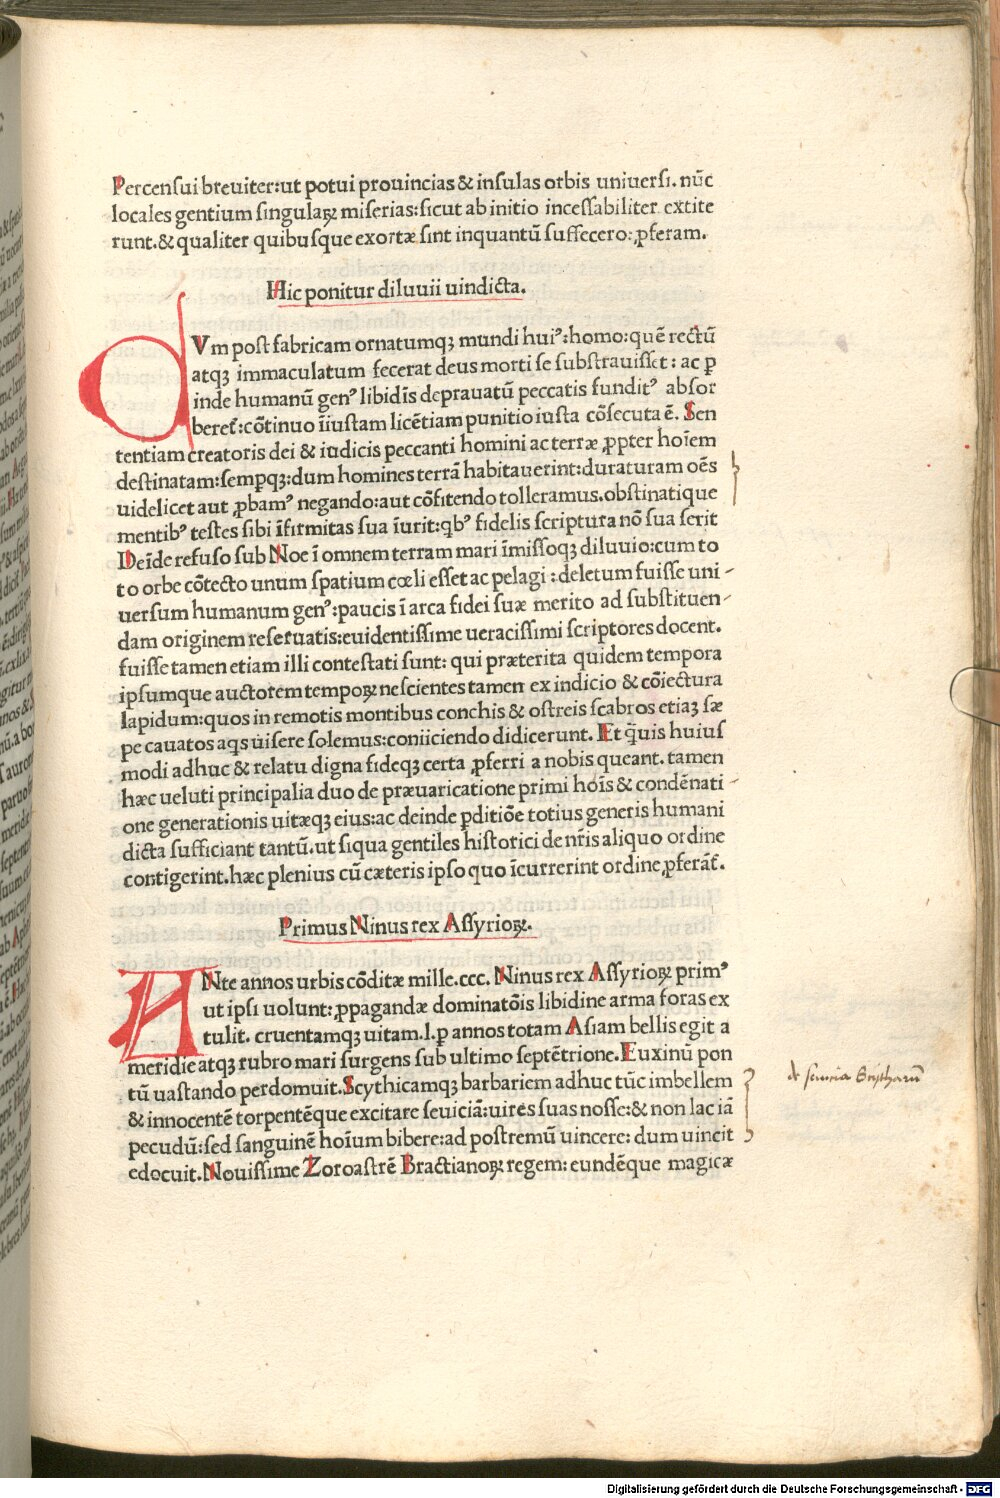 Percensui breuiter:ut potui prouincias & insulas orbis uniuersi. nūc
locales gentium singulaꝝ miserias:sicut ab initio incessabiliter extite
runt.& qualiter quibusque exortæ sint inquantū suffecero:ꝓferam.
Hic ponitur diluuii uindicta.
CVm post fabricam ornatumqꝫ mundi huiꝰ:homo:quē rectū
atqꝫ immaculatum fecerat deus morti se substrauisset: ac ꝑ
inde humanū genꝰ libidīs deprauatū peccatis funditꝰ absor
beret̉:cōtinuo īiustam licētiam punitio iusta cōsecuta ē. Sen
tentiam creatoris dei & iudicis peccanti homini ac terræ ꝓpter hoīem
destinatam:semꝑqꝫ:dum homines terrā habitauerint:duraturam oēs
uidelicet aut ꝓbamꝰ negando:aut cōfitendo tolleramus.obstinatique
mentibꝰ testes sibi īfirmitas sua īurit:qbꝰ fidelis scriptura nō sua serit
Deīde refuso sub Noe ī omnem terram mari īmissoqꝫ diluuio:cum to
to orbe cōtecto unum spatium cœli esset ac pelagi :deletum fuisse uni
uersum humanum genꝰ:paucis ī arca fidei suæ merito ad substituen
dam originem reseruatis:euidentissime ueracissimi scriptores docent.
fuisse tamen etiam illi contestati sunt: qui præterita quidem tempora
ipsumque auctorem tempoꝝ nescientes tamen ex indicio & cōiectura
lapidum:quos in remotis montibus conchis & ostreis scabros etiaꝫ sæ
pe cauatos aqs uisere solemus:coniiciendo didicerunt. Et q̄uis huius
modi adhuc & relatu digna fideqꝫ certa ꝓferri a nobis queant. tamen
hæc ueluti principalia duo de præuaricatione primi hoīs & condēnati
one generationis uitæqꝫ eius:ac deinde ꝑditiōe totius generis humani
dicta sufficiant tantū.ut siqua gentiles historici de nr̄is aliquo ordine
contigerint.hæc plenius cū cæteris ipso quo īcurrerint ordine ꝓferāt̉.
Primus Ninus rex Assyrioꝝ.
ANte annos urbis cōditæ mille.ccc. Ninus rex Assyrioꝝ primꝰ
ut ipsi uolunt:ꝓpagandæ dominatōis libidine arma foras ex
tulit. cruentamqꝫ uitam.l.ꝑ annos totam Asiam bellis egit a
meridie atqꝫ rubro mari surgens sub ultimo septētrione.Euxinū pon
tū uastando perdomuit.Scythicamqꝫ barbariem adhuc tūc imbellem
& innocentē torpentēque excitare seuiciā:uires suas nosse:& non lac iā
pecudū:sed sanguinē hoīum bibere:ad postremū uincere: dum uincit
edocuit.Nouissime Zoroastrē Bractianoꝝ regem: eundēque magicæ
de seuicia Scytharū
Digitalisierung gefördert durch die Deutsche Forschungsgemeinschaft - DFG